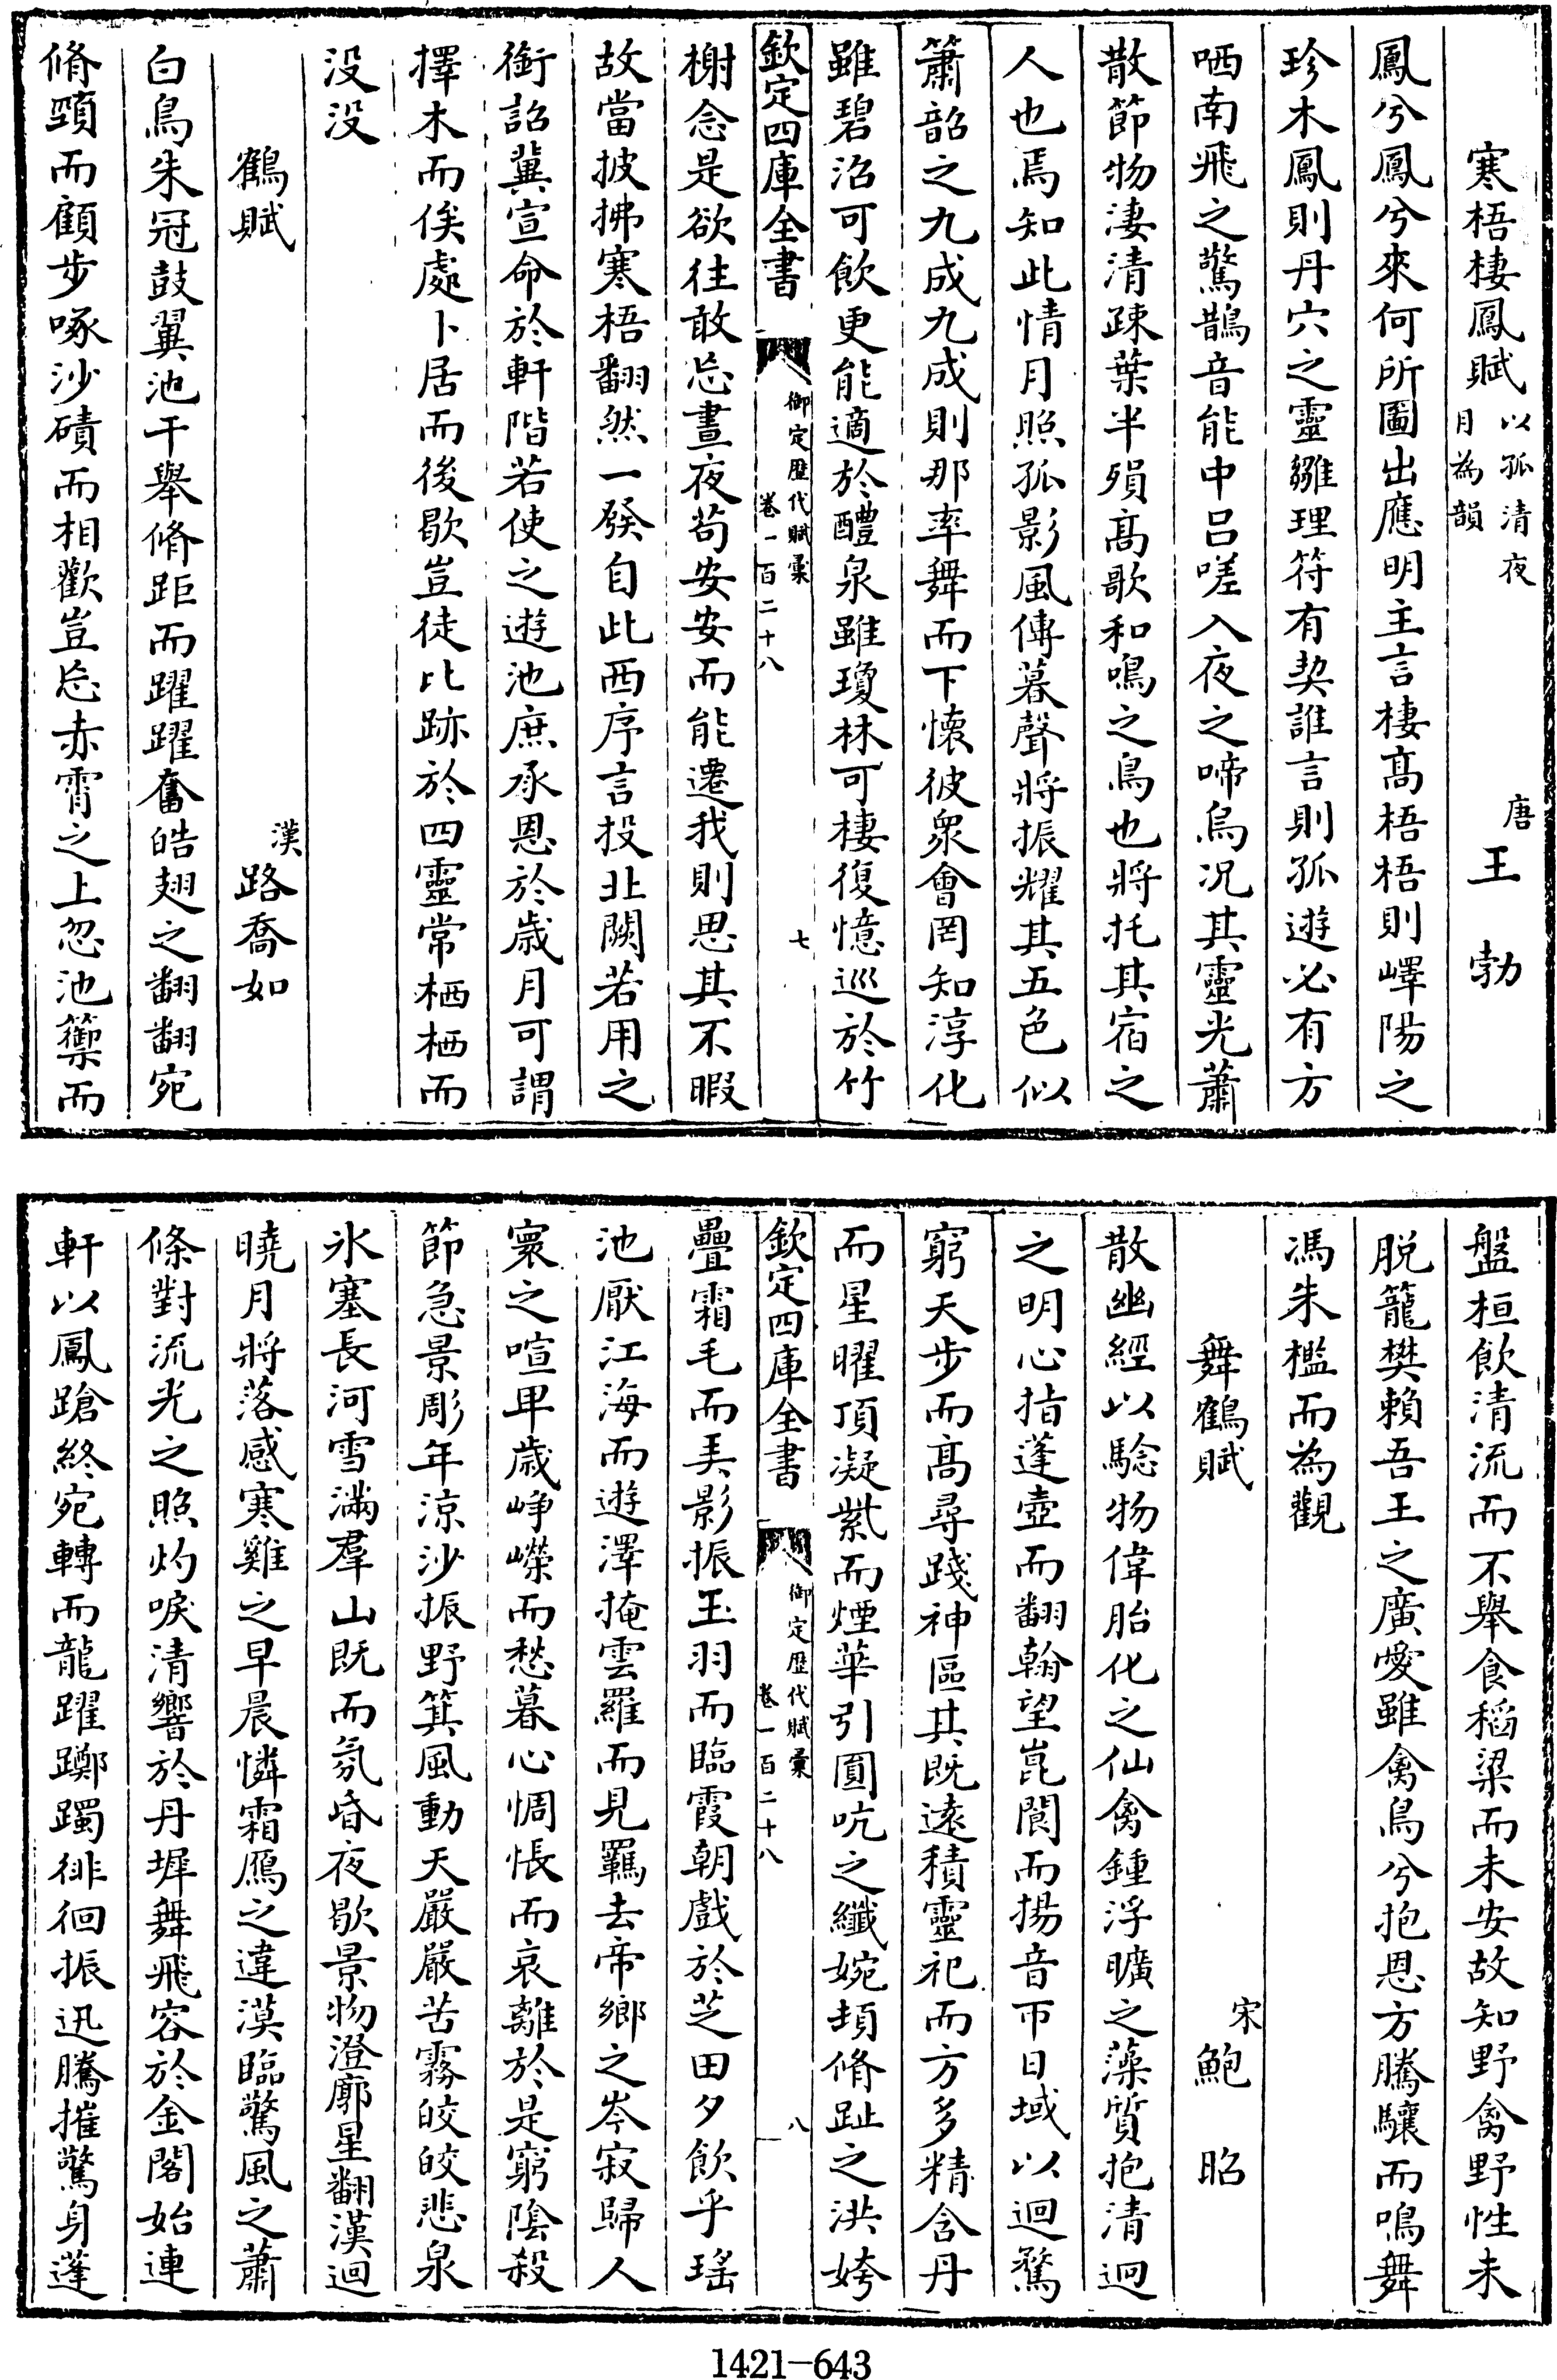 寒梧棲鳳賦以孤清夜月為韻 唐王勃
鳳兮鳳兮來何所圖出應明主言棲髙梧梧則嶧陽之
珍木鳳則丹穴之靈雛理符有契誰言則孤遊必有方
哂南飛之驚鵲音能中呂嗟入夜之啼烏况其靈光蕭
散節物淒清疎葉半殞髙歌和鳴之鳥也將托其宿之
人也焉知此情月照孤影風傳暮聲將振耀其五色似
簫韶之九成九成則那率舞而下懷彼衆會罔知淳化
雖碧沼可飲更能適於醴泉雖瓊林可棲復憶巡於竹
欽定四庫全書 御定歴代賦彙 卷一百二十八 七
榭念是欲往敢忘晝夜苟安安而能遷我則思其不暇
故當披拂寒梧翻然一發自此西序言投北闕若用之
銜詔冀宣命於軒階若使之遊池庶承恩於歲月可謂
擇木而俟處卜居而後歇豈徒比跡於四靈常栖栖而
没没
鶴賦 漢路喬如
白鳥朱冠鼓翼池干舉脩距而躍躍奮皓翅之翻翻宛
脩頸而顧步啄沙磧而相歡豈忘赤霄之上忽池籞而
盤桓飲清流而不舉食稻粱而未安故知野禽野性未
脱籠樊賴吾王之廣愛雖禽鳥兮抱恩方騰驤而鳴舞
馮朱檻而為觀
舞鶴賦 宋鮑昭
散幽經以騐物偉胎化之仙禽鍾浮曠之藻質抱清迥
之明心指蓬壺而翻翰望崑閬而揚音帀日域以迴騖
窮天步而髙尋踐神區其既遠積靈祀而方多精含丹
而星曜頂凝紫而煙華引圓吭之纖婉頓脩趾之洪姱
欽定四庫全書 御定歴代賦彙 卷一百二十八 八
疊霜毛而弄影振玉羽而臨霞朝戲於芝田夕飲乎瑤
池厭江海而遊澤掩雲羅而見羈去帝鄉之岑寂歸人
寰之喧卑歲崢嶸而愁暮心惆悵而哀離於是窮陰殺
節急景彫年涼沙振野箕風動天嚴嚴苦霧皎皎悲泉
氷塞長河雪滿羣山既而氛昏夜歇景物澄廓星翻漢迴
曉月將落感寒雞之早晨憐霜鴈之違漠臨驚風之蕭
條對流光之照灼唳清響於丹墀舞飛容於金閣始連
軒以鳳蹌終宛轉而龍躍躑躅徘徊振迅騰摧驚身蓬
1421—643